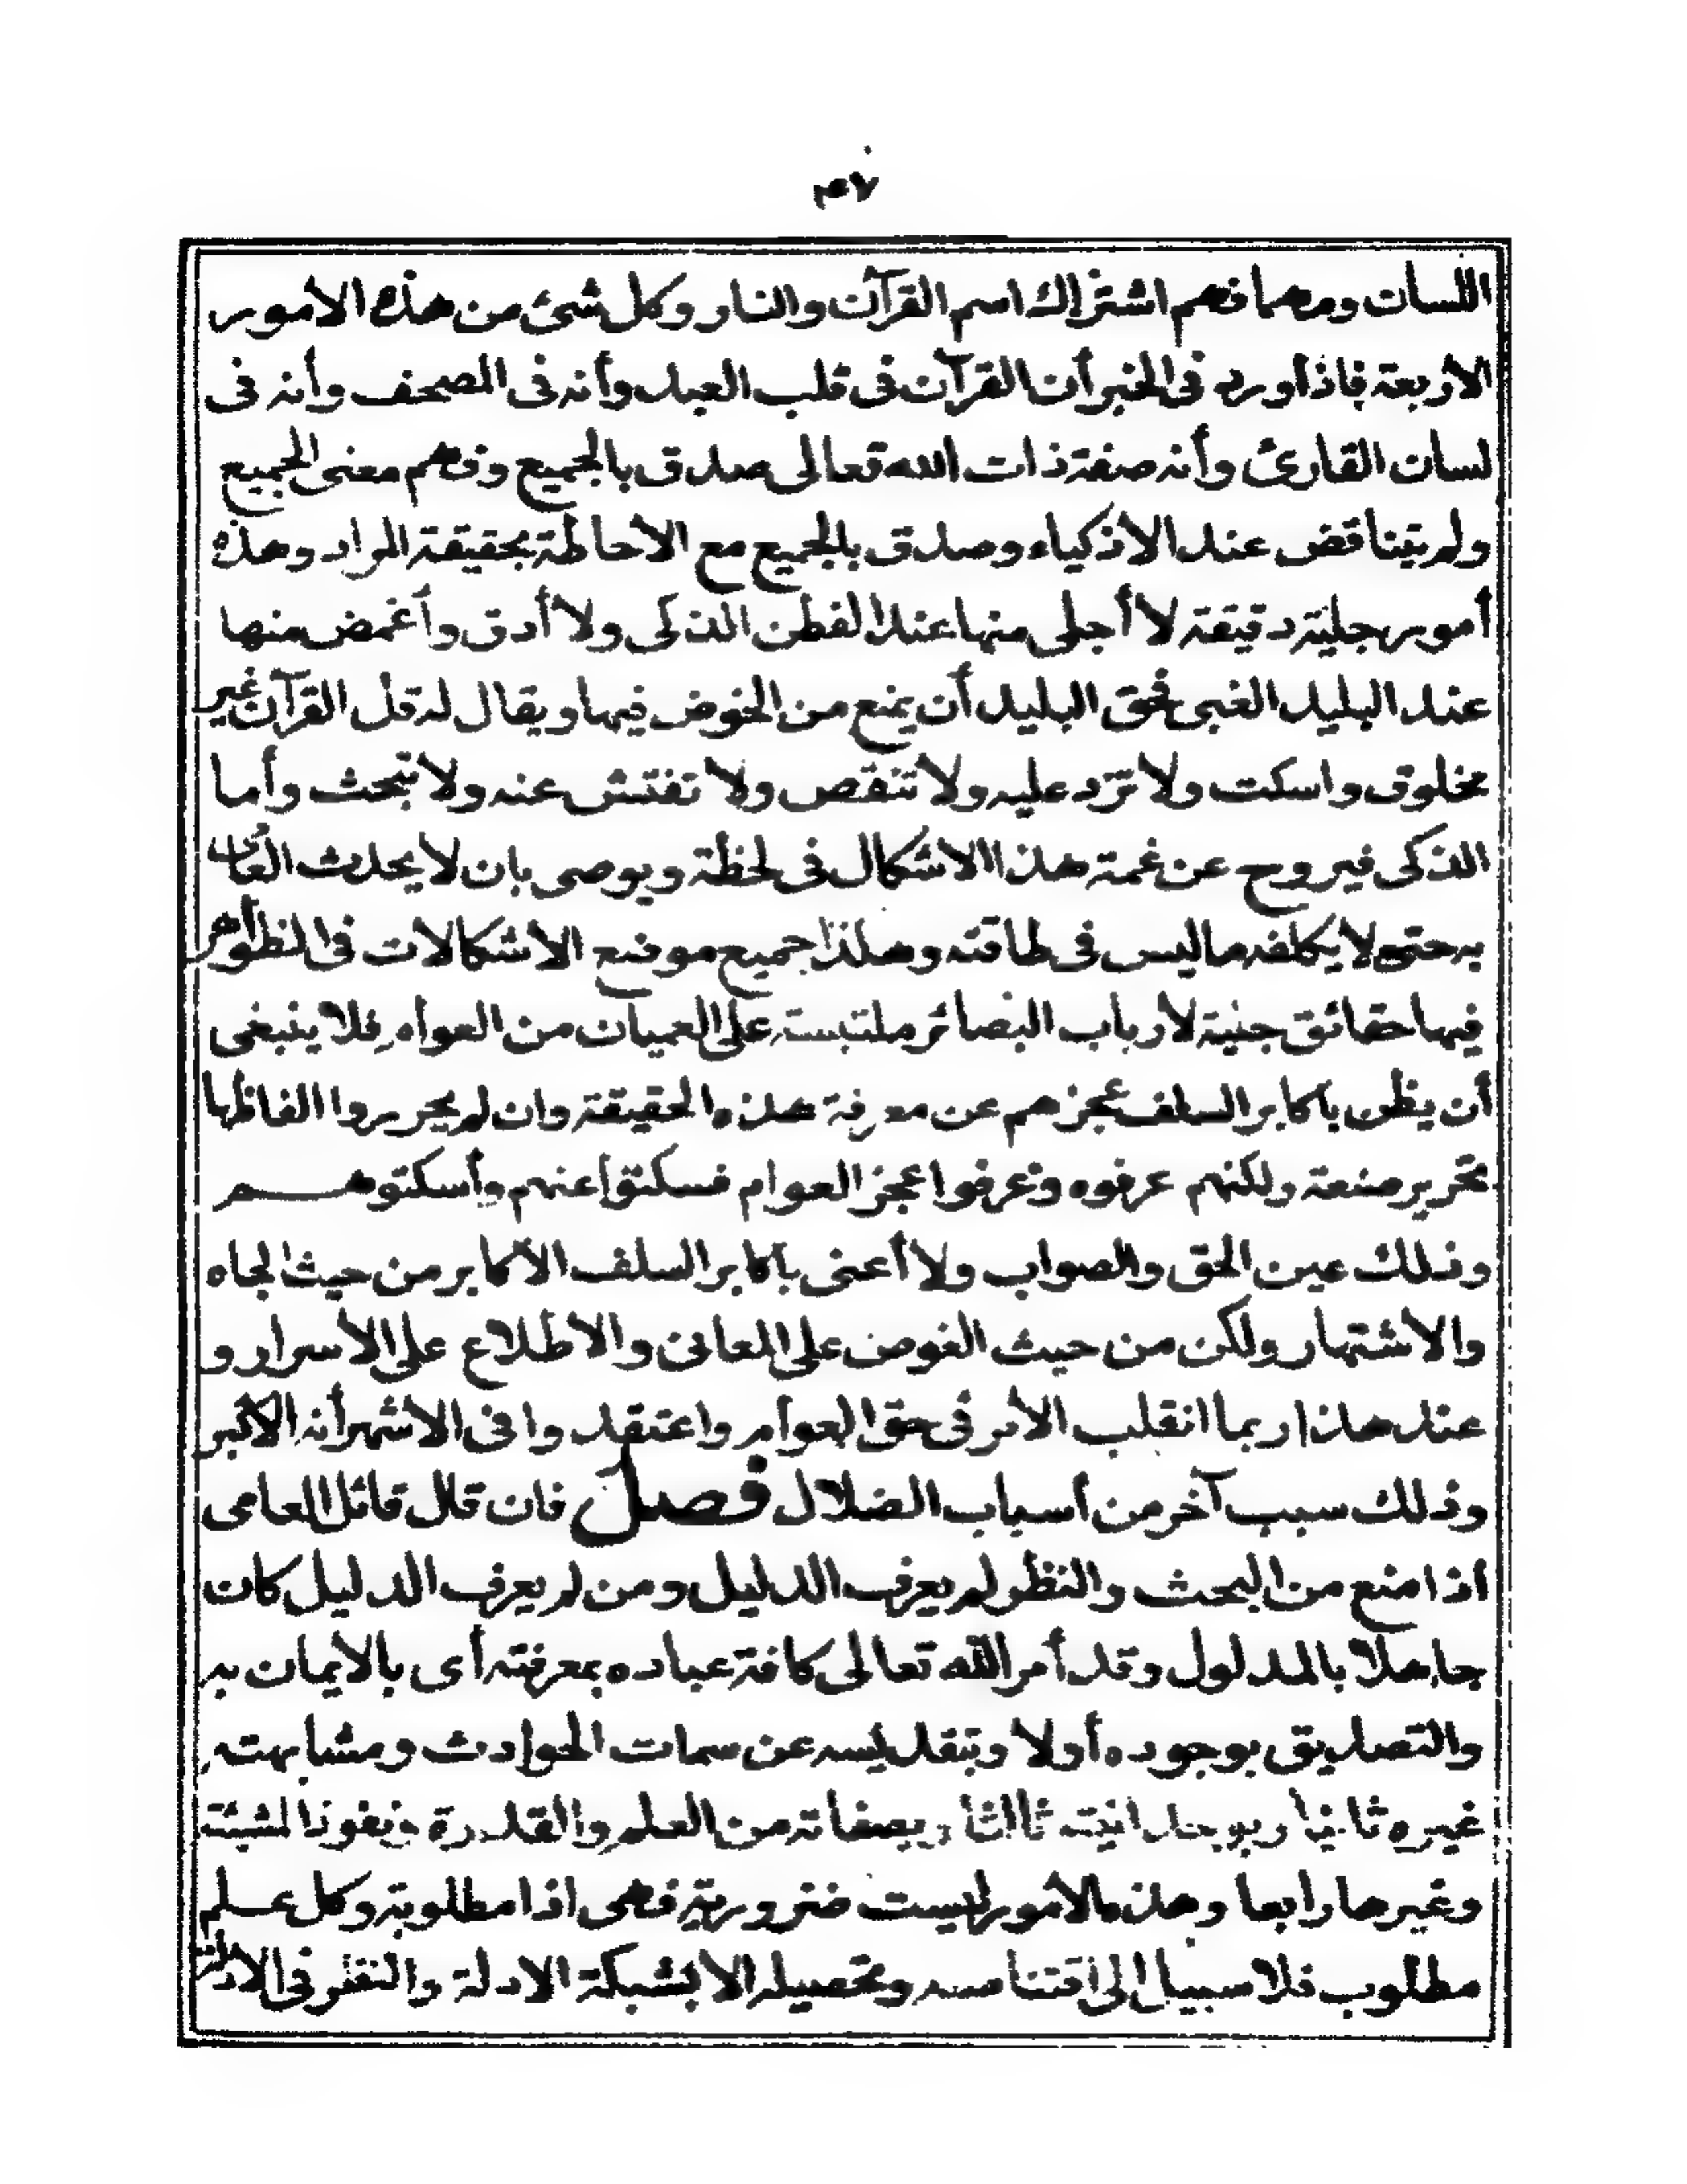 ٤٧
اللسان ومهما فهم اشتراك اسم القرآن والنار وكل شئ من هذه الأمور
الاربعة فاذا ورد فى الخبر أن القرآن فى قلب العبد وأنه فى المصحف وأنه فى
لسان القارئ وأنه صفة ذات الله تعالى صدق بالجميع وفهم معنى الجميع
ولم يتناقض عند الاذكياء وصدق بالجميع مع الاحاطة بحقيقة المراد وهذه
أمور جلية دقيقة لا أجلى منها عند الفطن الذكى ولا أدق وأغمض منها
عند البليد الغبى فحق البليد أن يمنع من الخوض فيها ويقال له قل القرآن غير
مخلوق واسكت ولا تزد عليه ولا تنقص ولا تفتش عنه ولا تبحث وأما
الذكى فيروح عن غمة هذا الاشكال فى لحظة ويوصى بان لا يحدث العامى
به حتى لا يكلفه ما ليس فى طاقته وهكذا جميع موضع الاشكالات فى الظواهر
فيها حقائق جلية لأرباب البصائر ملتبسة على العميان من العوام فلا ينبغى
أن يظن باكابر السلف عجزهم عن معرفة هذه الحقيقة وان لم يحرروا الفاظها
تحرير صنعة ولكنهم عرفوه وعرفوا عجز العوام فسكتوا عنهم وأسكتوهم
وذلك عين الحق والصواب ولا أعنى باكابر السلف الأكابر من حيث الجاه
والاشتهار ولكن من حيث الغوص على المعانى والاطلاع على الأسرار و
عند هذا ربما انقلب الأمر فى حق العوام واعتقدوا فى الأشهر أنه الأكبر
وذلك سبب آخر من أسباب الضلال فصل فان قال قائل العامى
اذا منع من البحث والنظر لم يعرف الدليل ومن لم يعرف الدليل كان
جاهلا بالمدلول وقد أمر الله تعالى كافة عباده بمعرفته أى بالايمان به
والتصديق بوجوده أولا وبتقديسه عن سمات الحوادث ومشابهته
غيره ثانيا وبوحدانيته ثالثا وبصفاته من العلم والقدرة ونفوذ المشيئة
وغيرها رابعا وهذه الأمور ليست ضرورية فهى اذا مطلوبة وكل علم
مطلوب فلا سبيل الى اقتناصه وتحصيله الا بشبكة الادلة والنظر فى الادلة